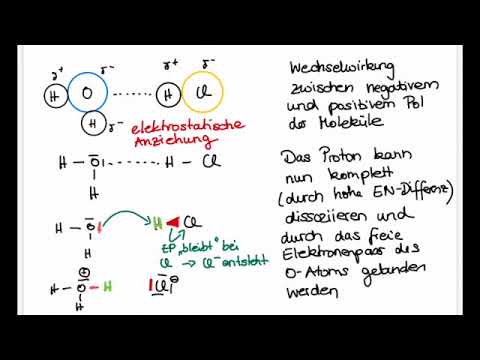 δ+ δ- δ+ δ-
H O H Cl
H δ-
elektrostatische
Anziehung
H - O - H - Cl
H
H - O H Cl
H
EP "bleibt" bei
Cl → Cl⊖ entsteht
⊕
H - O - H Cl ⊖
H
Wechselwirkung
zwischen negativem
und positivem Pol
der Moleküle
Das Proton kann
nun komplett
(durch hohe EN-Differenz)
dissoziieren und
durch das freie
Elektronenpaar des
O-Atoms gebunden
werden